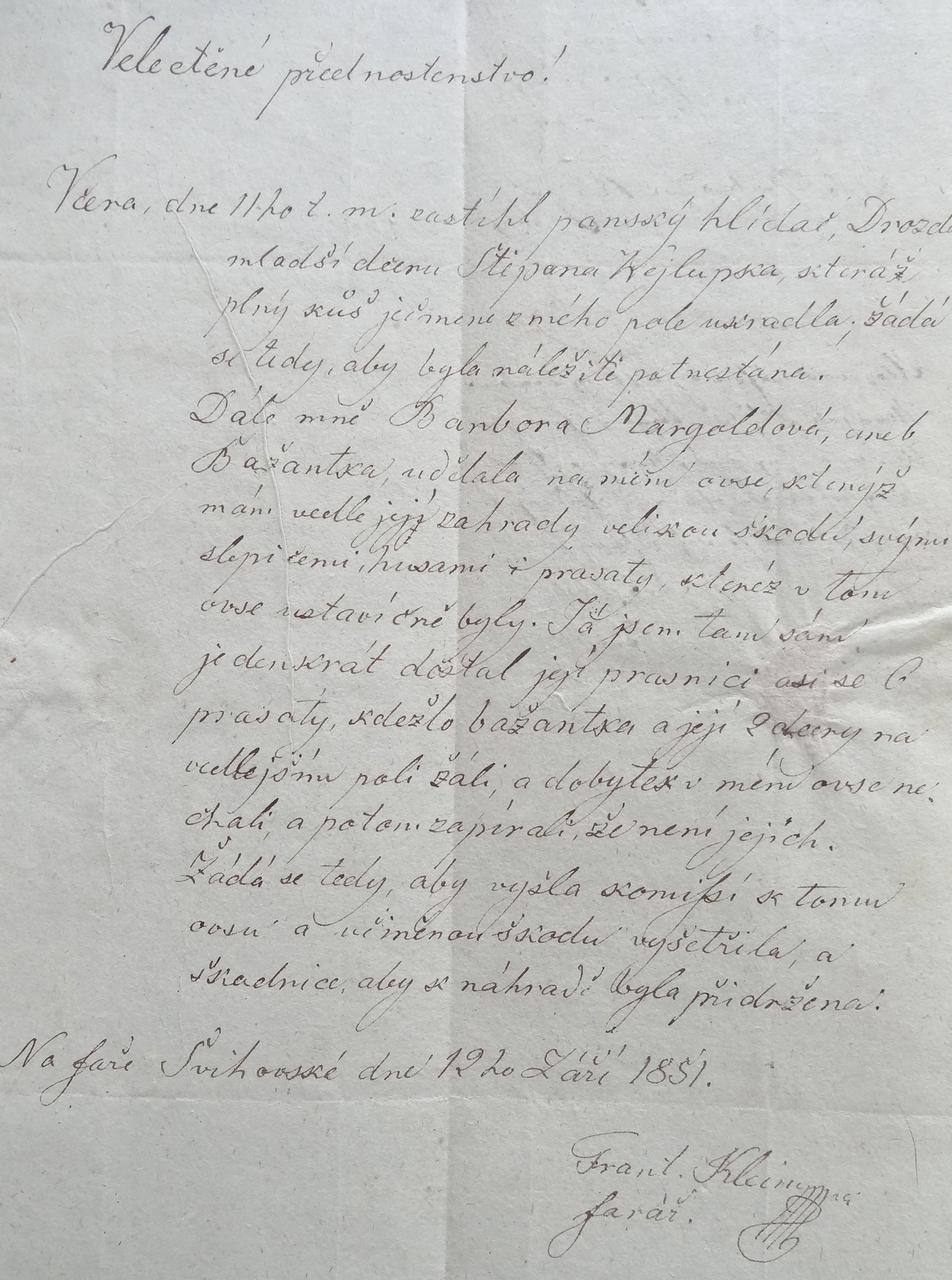 Velectěné přednostenstvo!
Včera, dne 11ho t. m. zastihl panský hlídač, Drozda
mladší dceru Štěpana Kejlupska, kteráž
plný kůš ječmene z mého pole ukradla; žádá
se tedy, aby byla náležitě potrestána.
Dále mně Barbora Margoldová, aneb
Bažantka, udělala na mém ovse, kterýž
mám vedle její zahrady velikou škodu, svými
slepicemi, husami i prasaty, kteréž v tom
ovse ustavičně byly. Já jsem tam sám
jedenkrát dostal její prasnici asi se 6
prasaty, kdežto bažantka a její 2 dcery na
vedlejším poli žáli, a dobytek v mém ovse ne-
chali, a potom zapírali, že není jejich.
Žádá se tedy, aby vyšla komissí k tomu
ovsu a učiněnou škodu vyšetřila, a
škodnice, aby k náhradě byla přidržena.
Na faře Švihovské dne 12ho Září 1851.
Frant.
farář.